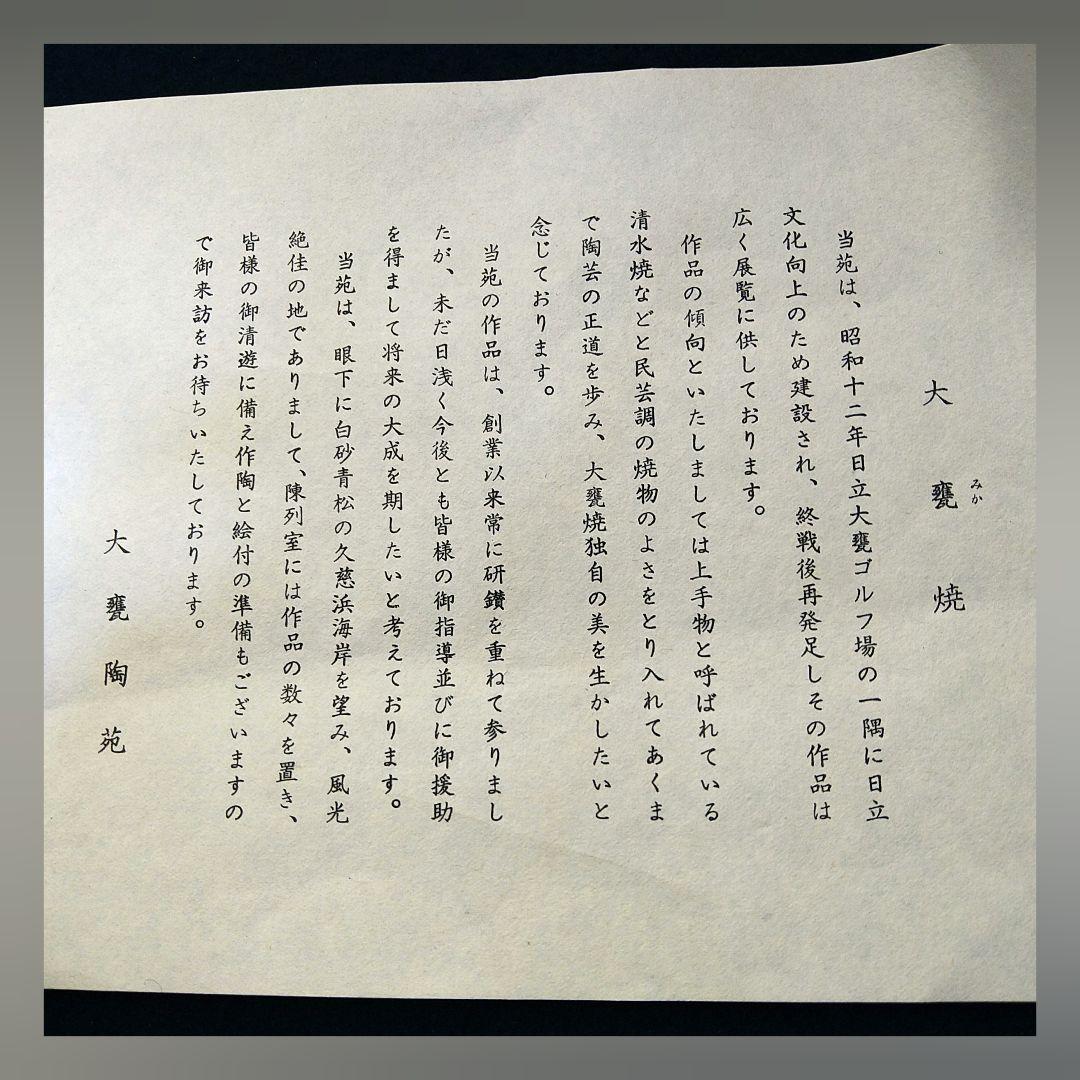 大甕焼
みか
当苑は、昭和十二年日立大甕ゴルフ場の一隅に日立
文化向上のため建設され、終戦後再発足しその作品は
広く展覧に供しております。
作品の傾向といたしましては上手物と呼ばれている
清水焼などと民芸調の焼物のよさをとり入れてあくま
で陶芸の正道を歩み、大甕焼独自の美を生かしたいと
念じております。
当苑の作品は、創業以来常に研鑽を重ねて参りまし
たが、未だ日浅く今後とも皆様の御指導並びに御援助
を得まして将来の大成を期したいと考えております。
当苑は、眼下に白砂青松の久慈浜海岸を望み、風光
絶佳の地でありまして、陳列室には作品の数々を置き、
皆様の御清遊に備え作陶と絵付の準備もございますの
で御来訪をお待ちいたしております。
大甕陶苑